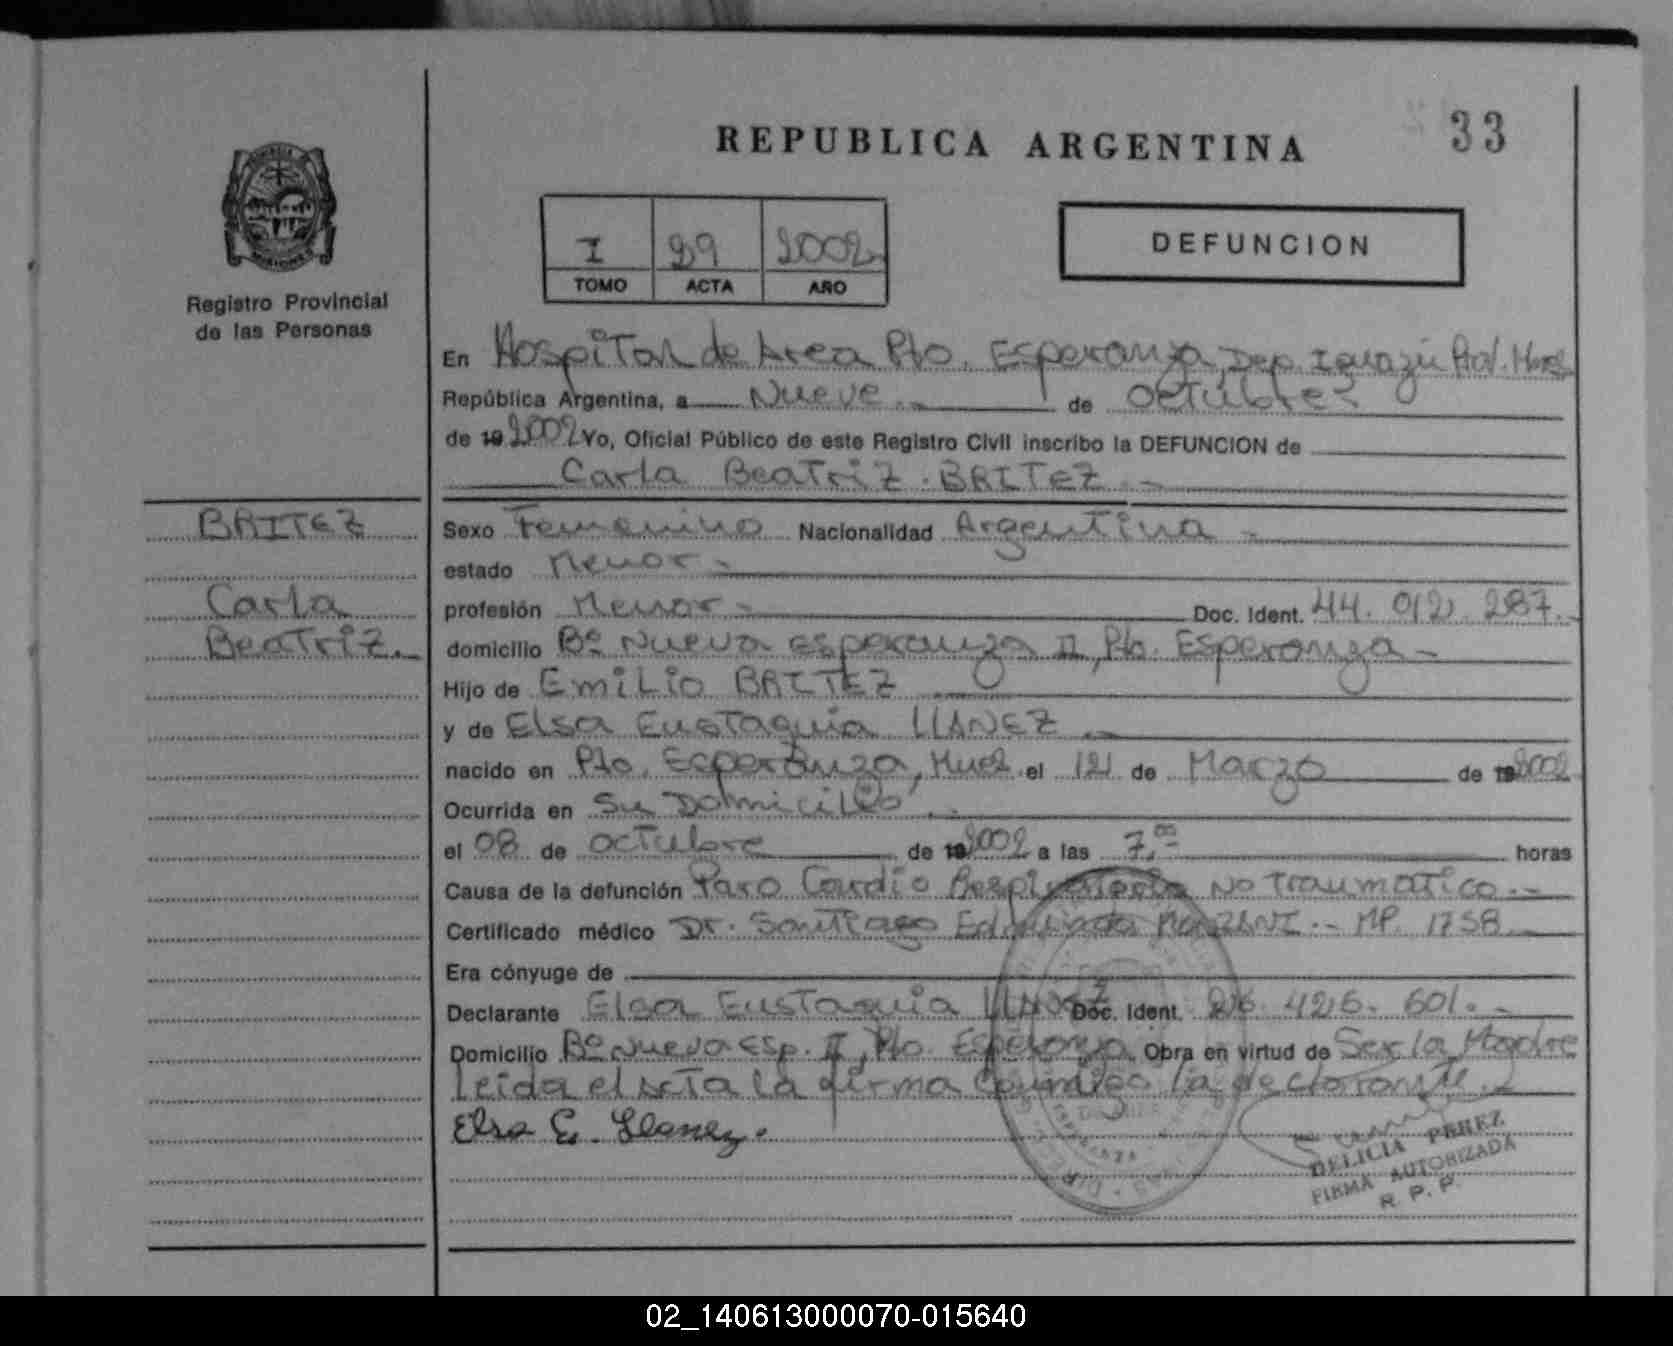 REPUBLICA ARGENTINA
33
Registro Provincial
de las Personas
I 29 2002
TOMO ACTA AÑO
DEFUNCION
En Hospital de Area Pto. Esperanza Dep. Iguazú
República Argentina, a Nueve de Octubre
de 19 2002 Yo, Oficial Público de este Registro Civil inscribo la DEFUNCION de
Carla Beatriz BRITEZ
BRITEZ
Carla
Beatriz
Sexo Femenino Nacionalidad Argentina
estado Menor
profesión Menor Doc. Ident. 44.012.287
domicilio Bº Nueva Esperanza II, Pto. Esperanza
Hijo de Emilio BRITEZ
y de Elsa Eustaquia LLANEZ
nacido en Pto. Esperanza, Mnes el 12 de Marzo de 19 2002
Ocurrida en Su Domicilio
el 08 de octubre de 19 2002 a las 7,00 horas
Causa de la defunción Paro Cardio Respiratorio No Traumatico
Certificado médico Dr. Santiago Edmundo MP. 1758
Era cónyuge de
Declarante Elsa Eustaquia LLANEZ Doc. Ident. 26.426.601
Domicilio Bº Nueva Esp. II, Pto. Esperanza Obra en virtud de Ser la Madre
Leida el acta la firma conmigo la declarante.
Elsa E. Llanez.
DELICIA PEREZ
FIRMA AUTORIZADA
R. P. P.
02_140613000070-015640